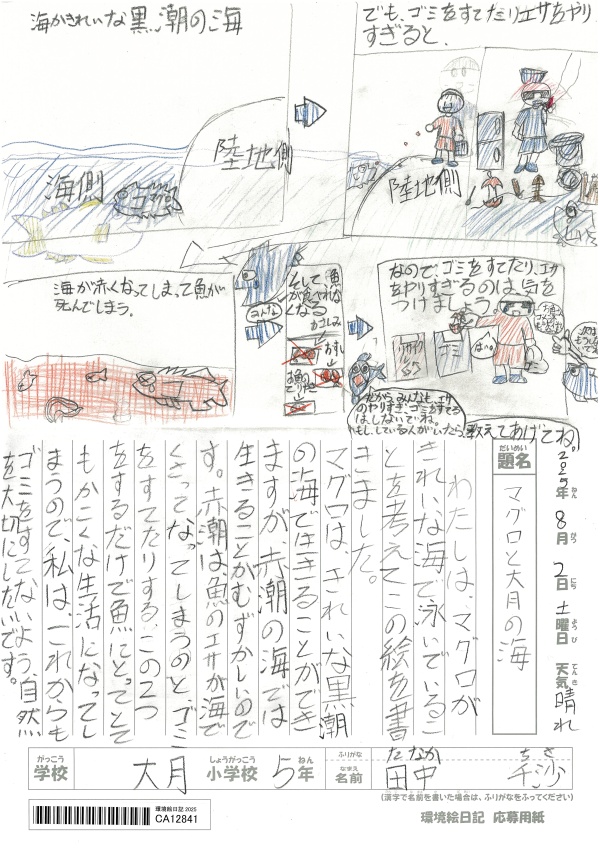 海がきれいな黒潮の海
海側
陸地側
でも、ゴミをすてたりエサをやり
すぎると、
陸地側
海が赤くなってしまって魚が
死んでしまう。
そして、魚
が食べれな
くなる
みんな
なので、ゴミをすてたり、エサ
をやりすぎるのは、気を
つけましょう。
ゴミ
はい。
だから、みんなも、エサ
のやりすぎ、ゴミをすてる
は、しないでね。
もし、している人がいたら、教えてあげてね。
2025年 8月 2日 土曜日 天気 晴れ
ねん がつ にち ようび てんき
だいめい
題名
マグロと大月の海
わたしは、マグロが
きれいな海で泳いでいるこ
とを考えてこの絵を書
きました。
マグロは、きれいな黒潮
の海で生きることができ
ますが、赤潮の海では
生きることがむずかしいので
す。赤潮は、魚のエサが海で
くさってなってしまうのと、ゴミ
をすてたりする、この2つ
をするだけで魚にとってとて
もかこくな生活になってし
まうので、私は、これからも
ゴミをすてないよう、自然
を大切にしたいです。
がっこう
学校
大月
しょうがっこう
小学校
5
ねん
年
ふりがな
なまえ
名前
たなか ちさ
田中 千沙
(漢字で名前を書いた場合は、ふりがなをふってください)
環境絵日記 2025
CA12841
環境絵日記 応募用紙